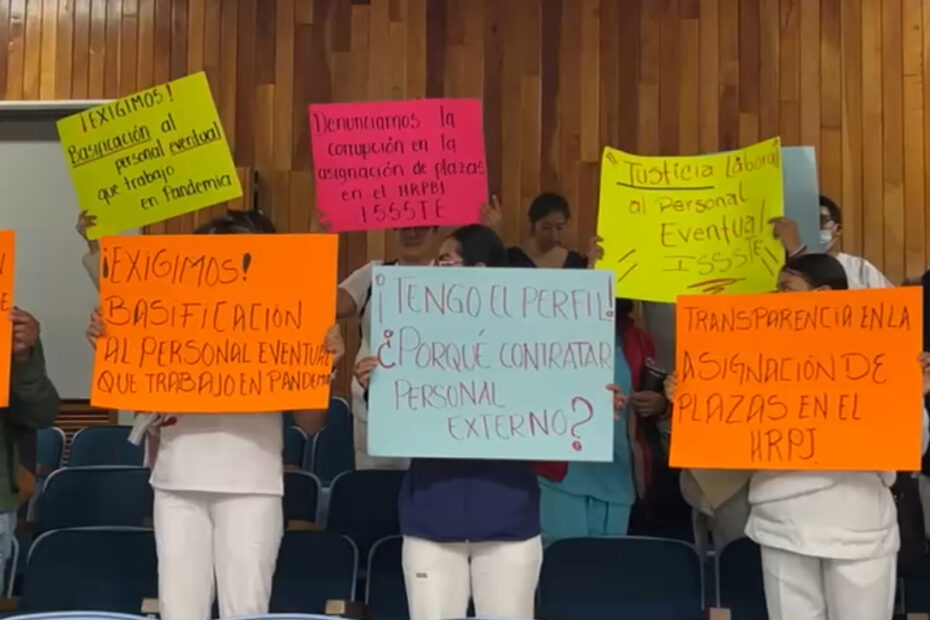 ¡EXIGIMOS!
Basificación al
personal eventual
que trabajo
en Pandemia
Denunciamos la
corrupción en la
asignación de plazas
en el HRPBJ
ISSSTE
Justicia Laboral
al Personal
Eventual
ISSSTE
¡EXIGIMOS!
BASIFICACIÓN
AL PERSONAL EVENTUAL
QUE TRABAJO EN PANDEMIA
¡TENGO EL PERFIL!
¿PORQUÉ CONTRATAR
PERSONAL
EXTERNO?
TRANSPARENCIA EN LA
ASIGNACIÓN DE
PLAZAS EN EL
HRPJ